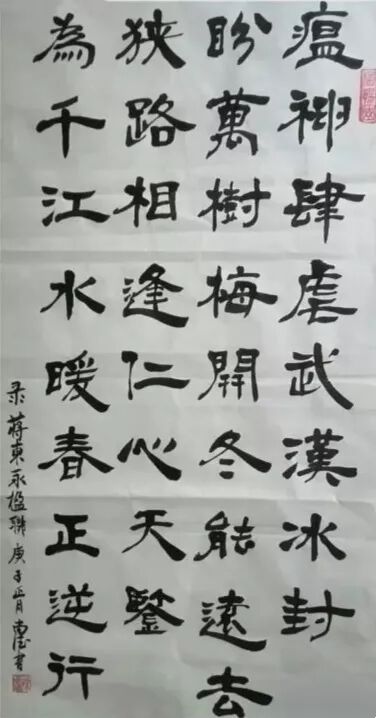 瘟神肆虐武漢冰封
盼萬樹梅開冬能遠去
狹路相逢仁心天鑒
為千江水暖春正逆行
录蒋東永楹聯庚子正月書